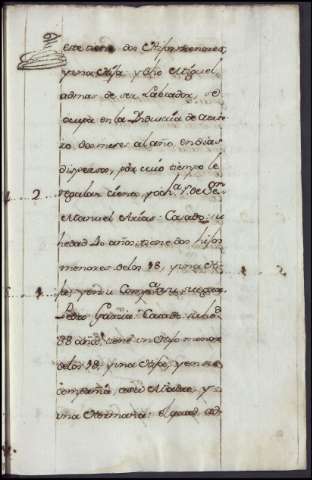 este tiene dos Hijos menores,
y una Hija y dho Miguel
ademas de ser Labrador, se
ocupa en la Industria de
dos meses al año, en dias
dispersos, por cuio tiempo le
regulan ciento, y och.ta R.s de V.on
2 Manuel Arias: Casado: su
hedad 40 años, tiene dos hijos
menores de los 18, y una Hi-
ja, y en su Comp.a
Pedro Garcia: Casado su hed.d
38 años, tiene un Hijo menor
de los 18, y una Hija, y en su
compañia, a su Madre, y
una Hermana: el qual, ad-